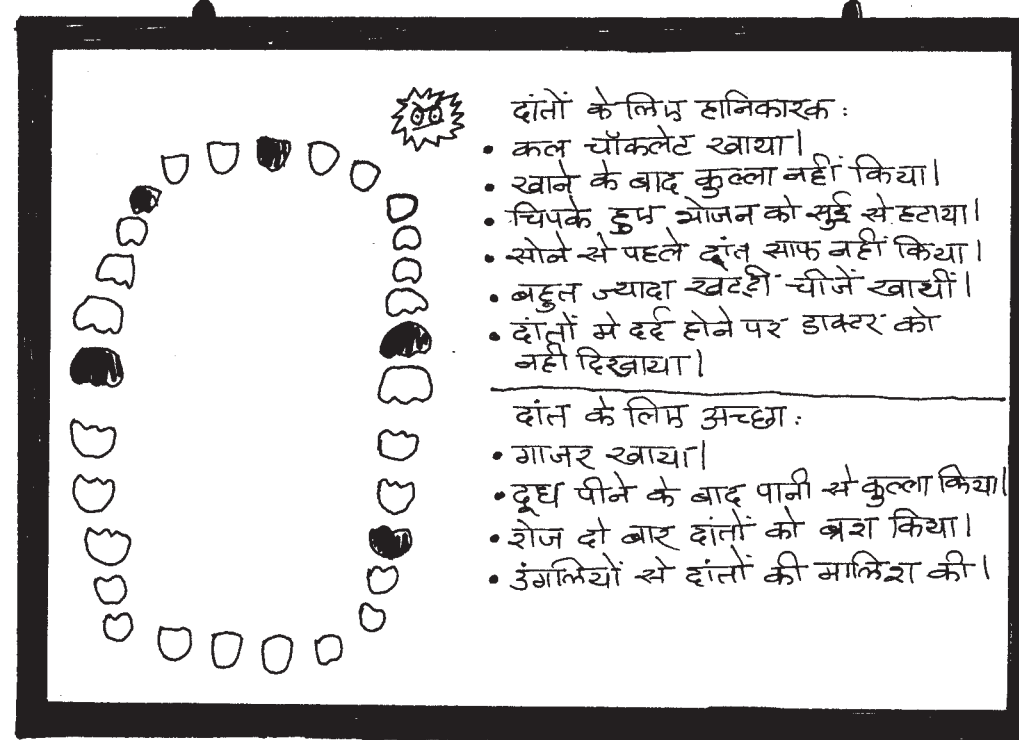 दांतों के लिए हानिकारक :
• कल चॉकलेट खाया।
• खाने के बाद कुल्ला नहीं किया।
• चिपके हुए भोजन को सुई से हटाया।
• सोने से पहले दांत साफ नहीं किया।
• बहुत ज्यादा खट्टी चीजें खायीं।
• दांतों मे दर्द होने पर डाक्टर को
नहीं दिखाया।
दांत के लिए अच्छा :
• गाजर खाया।
• दूध पीने के बाद पानी से कुल्ला किया।
• रोज दो बार दांतों को ब्रश किया।
• उंगलियों से दांतों की मालिश की।